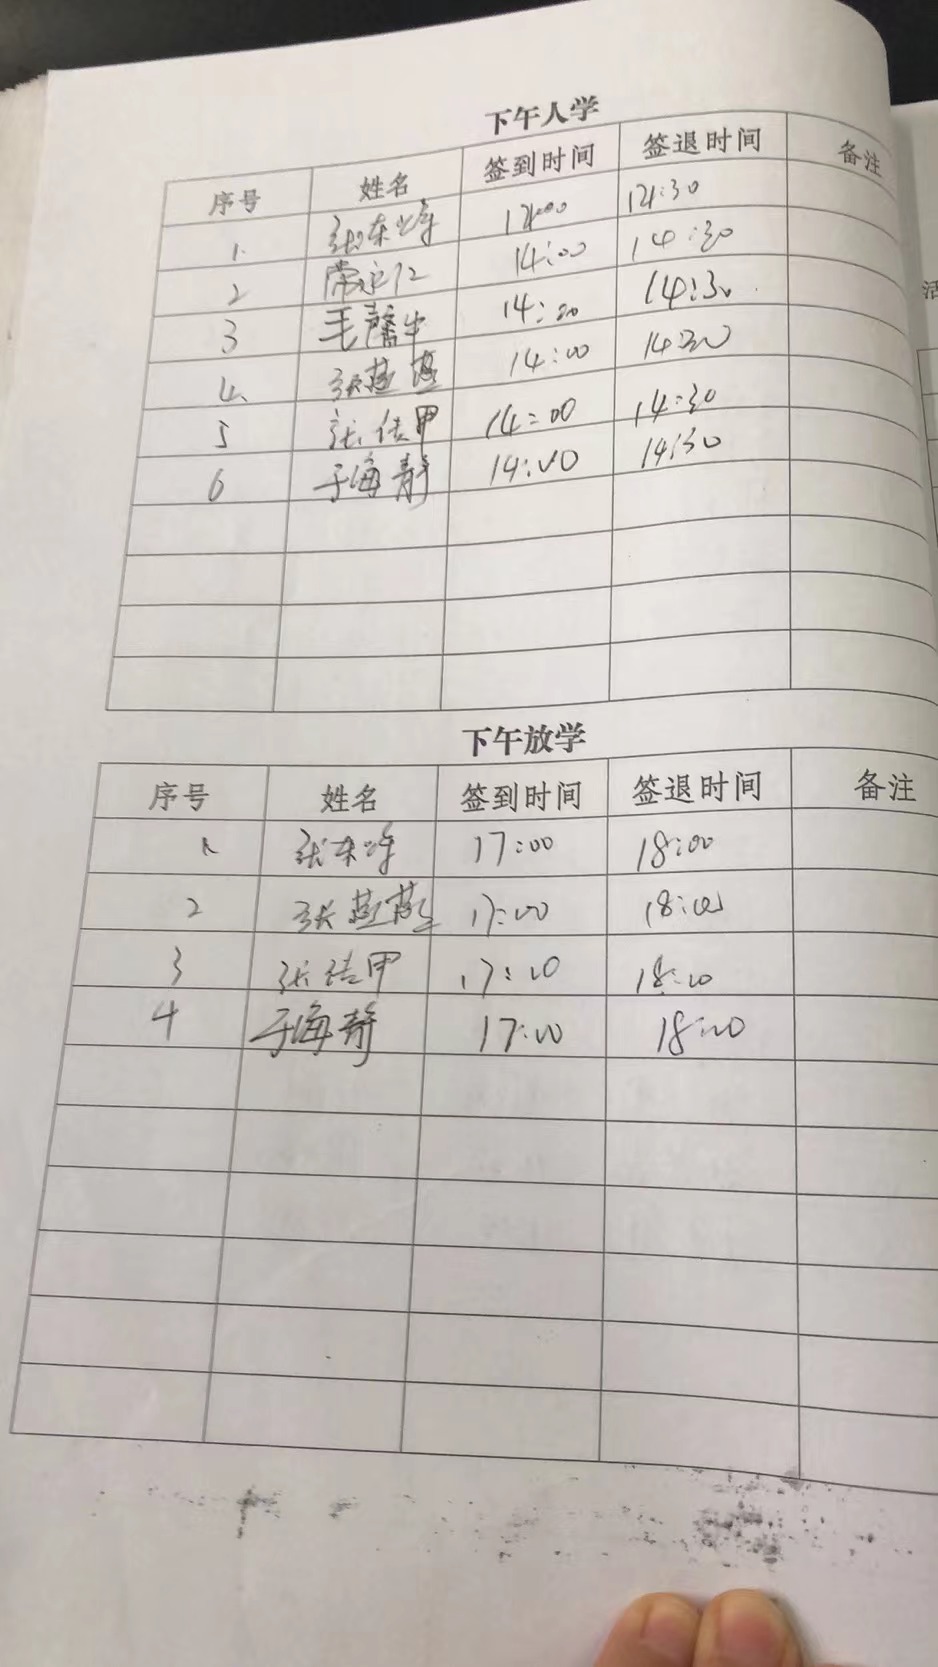 下午入学
序号 姓名 签到时间 签退时间 备注
1. 张东峰 14:00 14:30
2 常永仁 14:00 14:30
3 毛 14:00 14:30
4. 张燕燕 14:00 14:30
5 张佶甲 14:00 14:30
6 于海静 14:00 14:30
下午放学
序号 姓名 签到时间 签退时间 备注
1. 张东峰 17:00 18:00
2 张燕燕 17:00 18:00
3 张佶甲 17:00 18:00
4 于海静 17:00 18:00
活